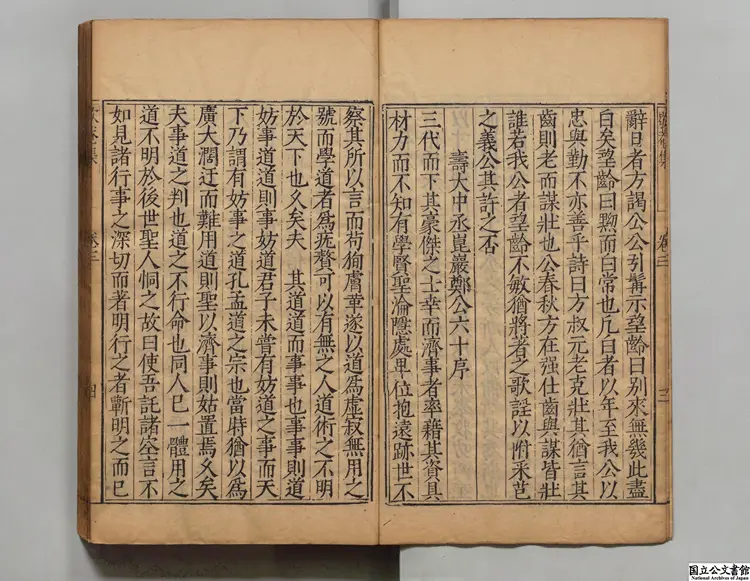 辭日者方謁公公引髯示望齡曰別來無幾此盡
白矣望齡曰黝而白常也凡白者以年至我公以
忠與勤不亦善乎詩曰方叔元老克壯其猶言其
齒則老而謀壯也公春秋方在强仕齒與謀皆壯
誰若我公者望齡不敏猶將著之歌謡以附采芑
之義公其許之否
壽大中丞崑巖鄭公六十序
三代而下其豪傑之士幸而濟事者率藉其資具
材力而不知有學賢聖淪隱處卑位抱遠跡世不
卷三
三
察其所以言而苟狥膚華遂以道爲虛寂無用之
號而學道者爲疣贅可以有無之人道術之不明
於天下也久矣夫其道道而事事也事事則道
妨事道道則事妨道君子未嘗有妨道之事而天
下乃謂有妨事之道孔孟道之宗也當時猶以爲
廣大濶迂而難用道則聖以濟事則姑置焉久矣
夫事道之判也道之不行命也同人已一體用之
道不明於後世聖人恫之故曰使吾託諸空言不
如見諸行事之深切而著明行之者斬明之而已
卷三
四
国立公文書館
National Archives of Japan